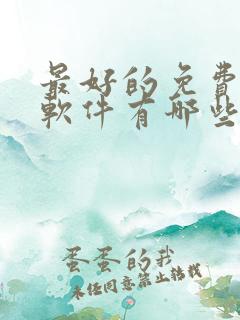 最好的免费
軟件有哪些
蛋蛋的我
未经同意禁止转载